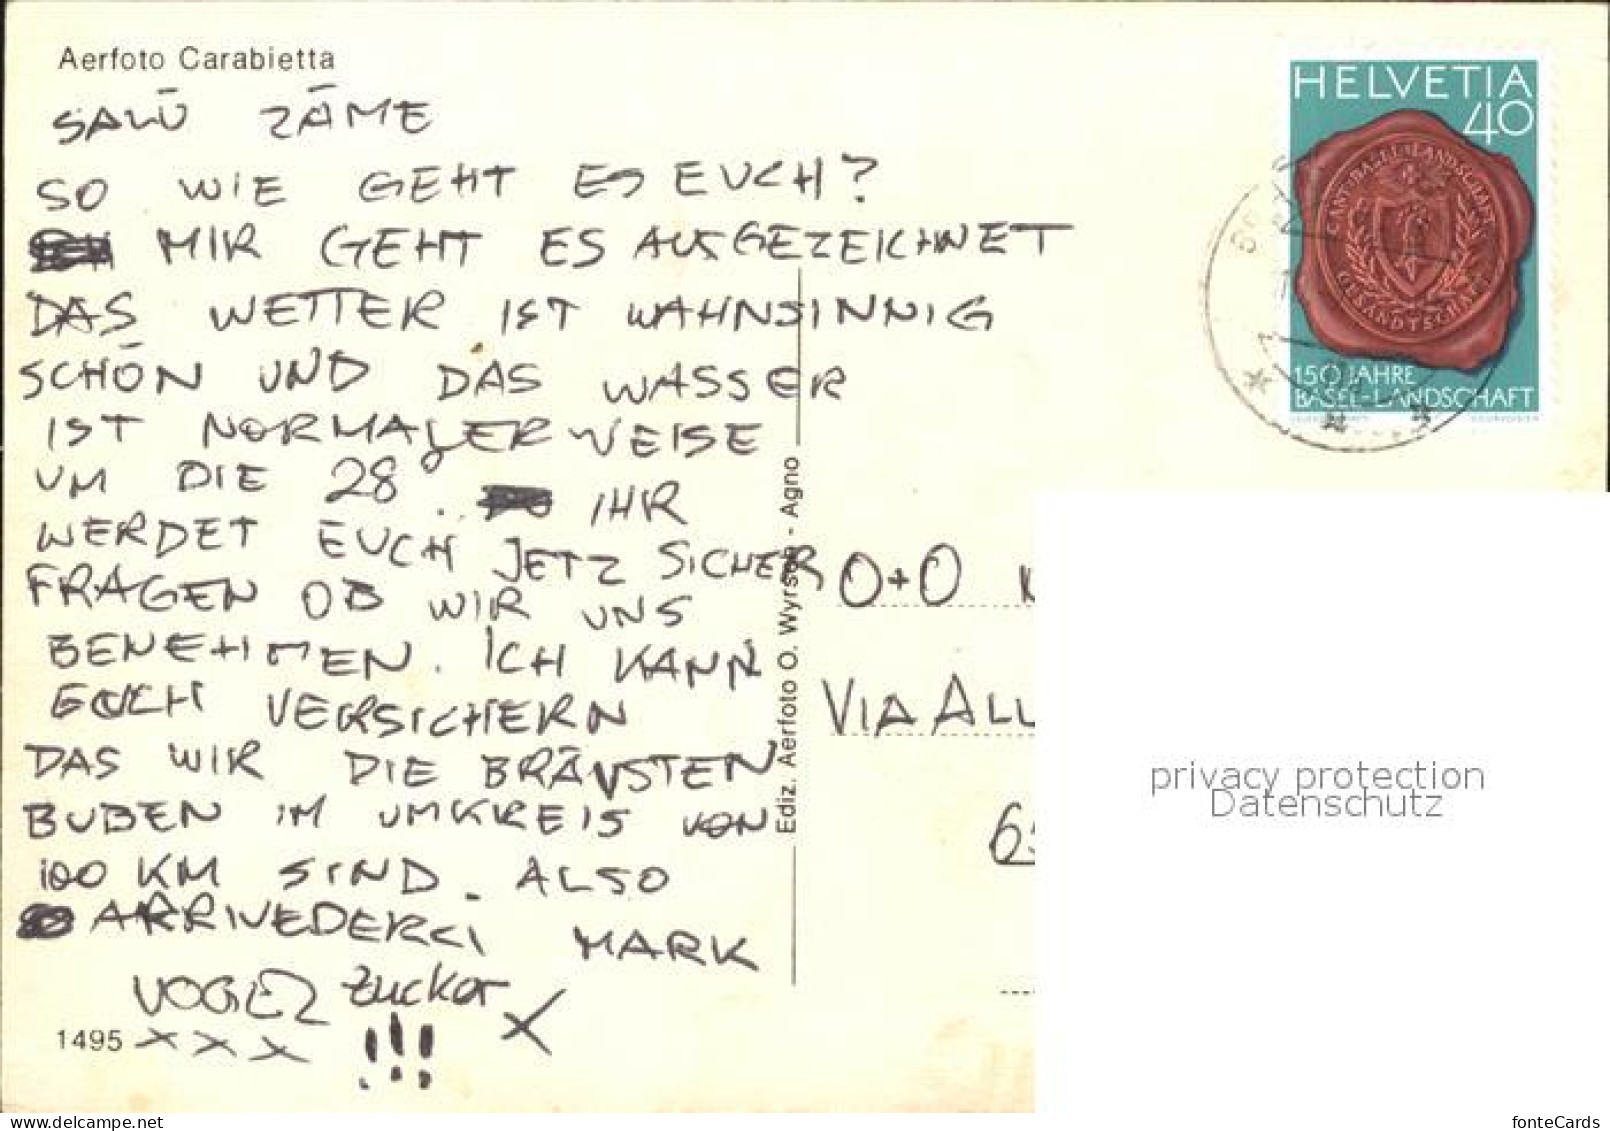 Aerfoto Carabietta
SALÜ ZÄME
SO WIE GEHT ES EUCH?
MIR GEHT ES AUSGEZEICHNET
DAS WETTER IST WAHNSINNIG
SCHÖN UND DAS WASSER
IST NORMALERWEISE
UM DIE 28°. IHR
WERDET EUCH JETZ SICHER
FRAGEN OB WIR UNS
BENEHMEN. ICH KANN
EUCH VERSICHERN
DAS WIR DIE BRÄVSTEN
BUBEN IM UMKREIS VON
100 KM SIND. ALSO
ARRIVEDERCI MARK
VOGEL Zucker
xxx !!! X
1495
Ediz. Aerfoto O. Wyrsch - Agno
HELVETIA
40
CANT: BASEL-LANDSCHAFT
GESANDTSCHAFT
150 JAHRE
BASEL-LANDSCHAFT
O+O
VIA ALL
65
privacy protection
Datenschutz
fonteCards